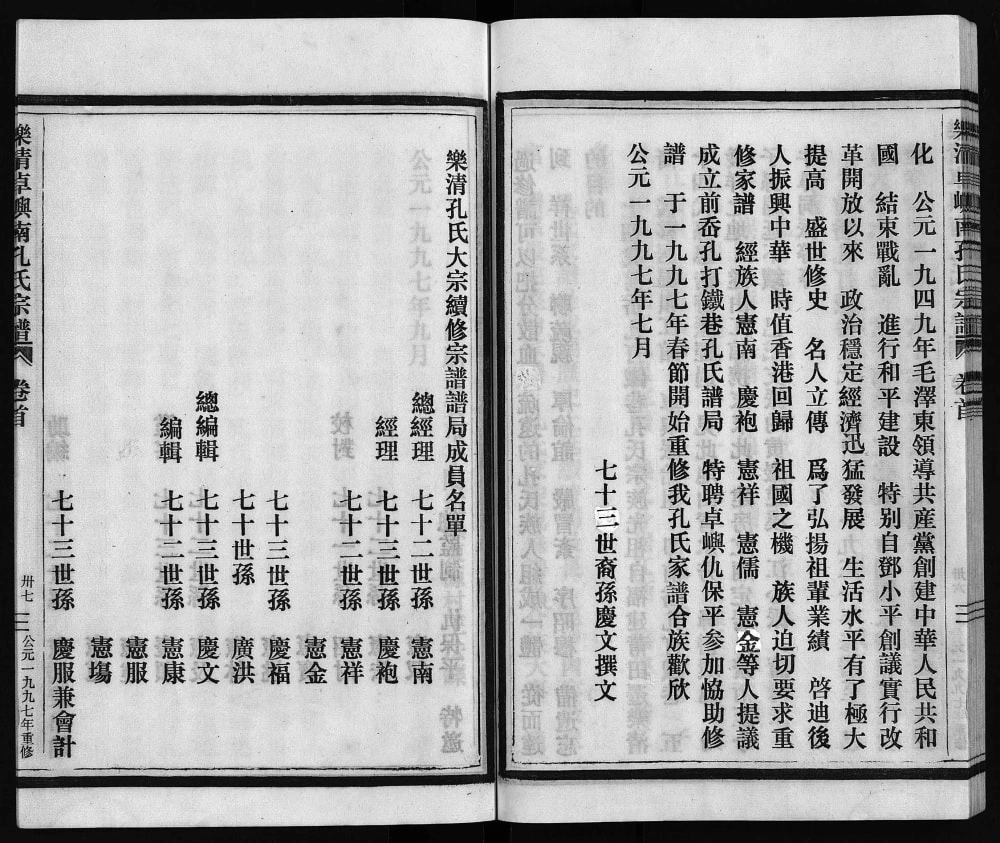 樂清卓嶼南孔氏宗譜 卷首
化 公元一九四九年毛澤東領導共産黨創建中華人民共和
國 結束戰亂 進行和平建設 特别自鄧小平創議實行改
革開放以來 政治穩定經濟迅猛發展 生活水平有了極大
提高 盛世修史 名人立傳 爲了弘揚祖輩業績 啓迪後
人振興中華 時值香港回歸 祖國之機 族人迫切要求重
修家譜 經族人憲南 慶袍 憲祥 憲儒 憲金等人提議
成立前岙孔打鐵巷孔氏譜局 特聘卓嶼仇保平參加恊助修
譜 于一九九七年春節開始重修我孔氏家譜合族歡欣
七十三世裔孫慶文撰文
公元一九九七年七月
樂清孔氏大宗續修宗譜譜局成員名單
總經理 七十二世孫 憲南
經理 七十三世孫 慶袍
七十二世孫 憲祥
憲金
七十三世孫 慶福
七十世孫 廣洪
總編輯 七十三世孫 慶文
編輯 七十二世孫 憲康
憲服
憲塲
七十三世孫 慶服兼會計
樂清卓嶼南孔氏宗譜 卷首 卅七 公元一九九七年重修